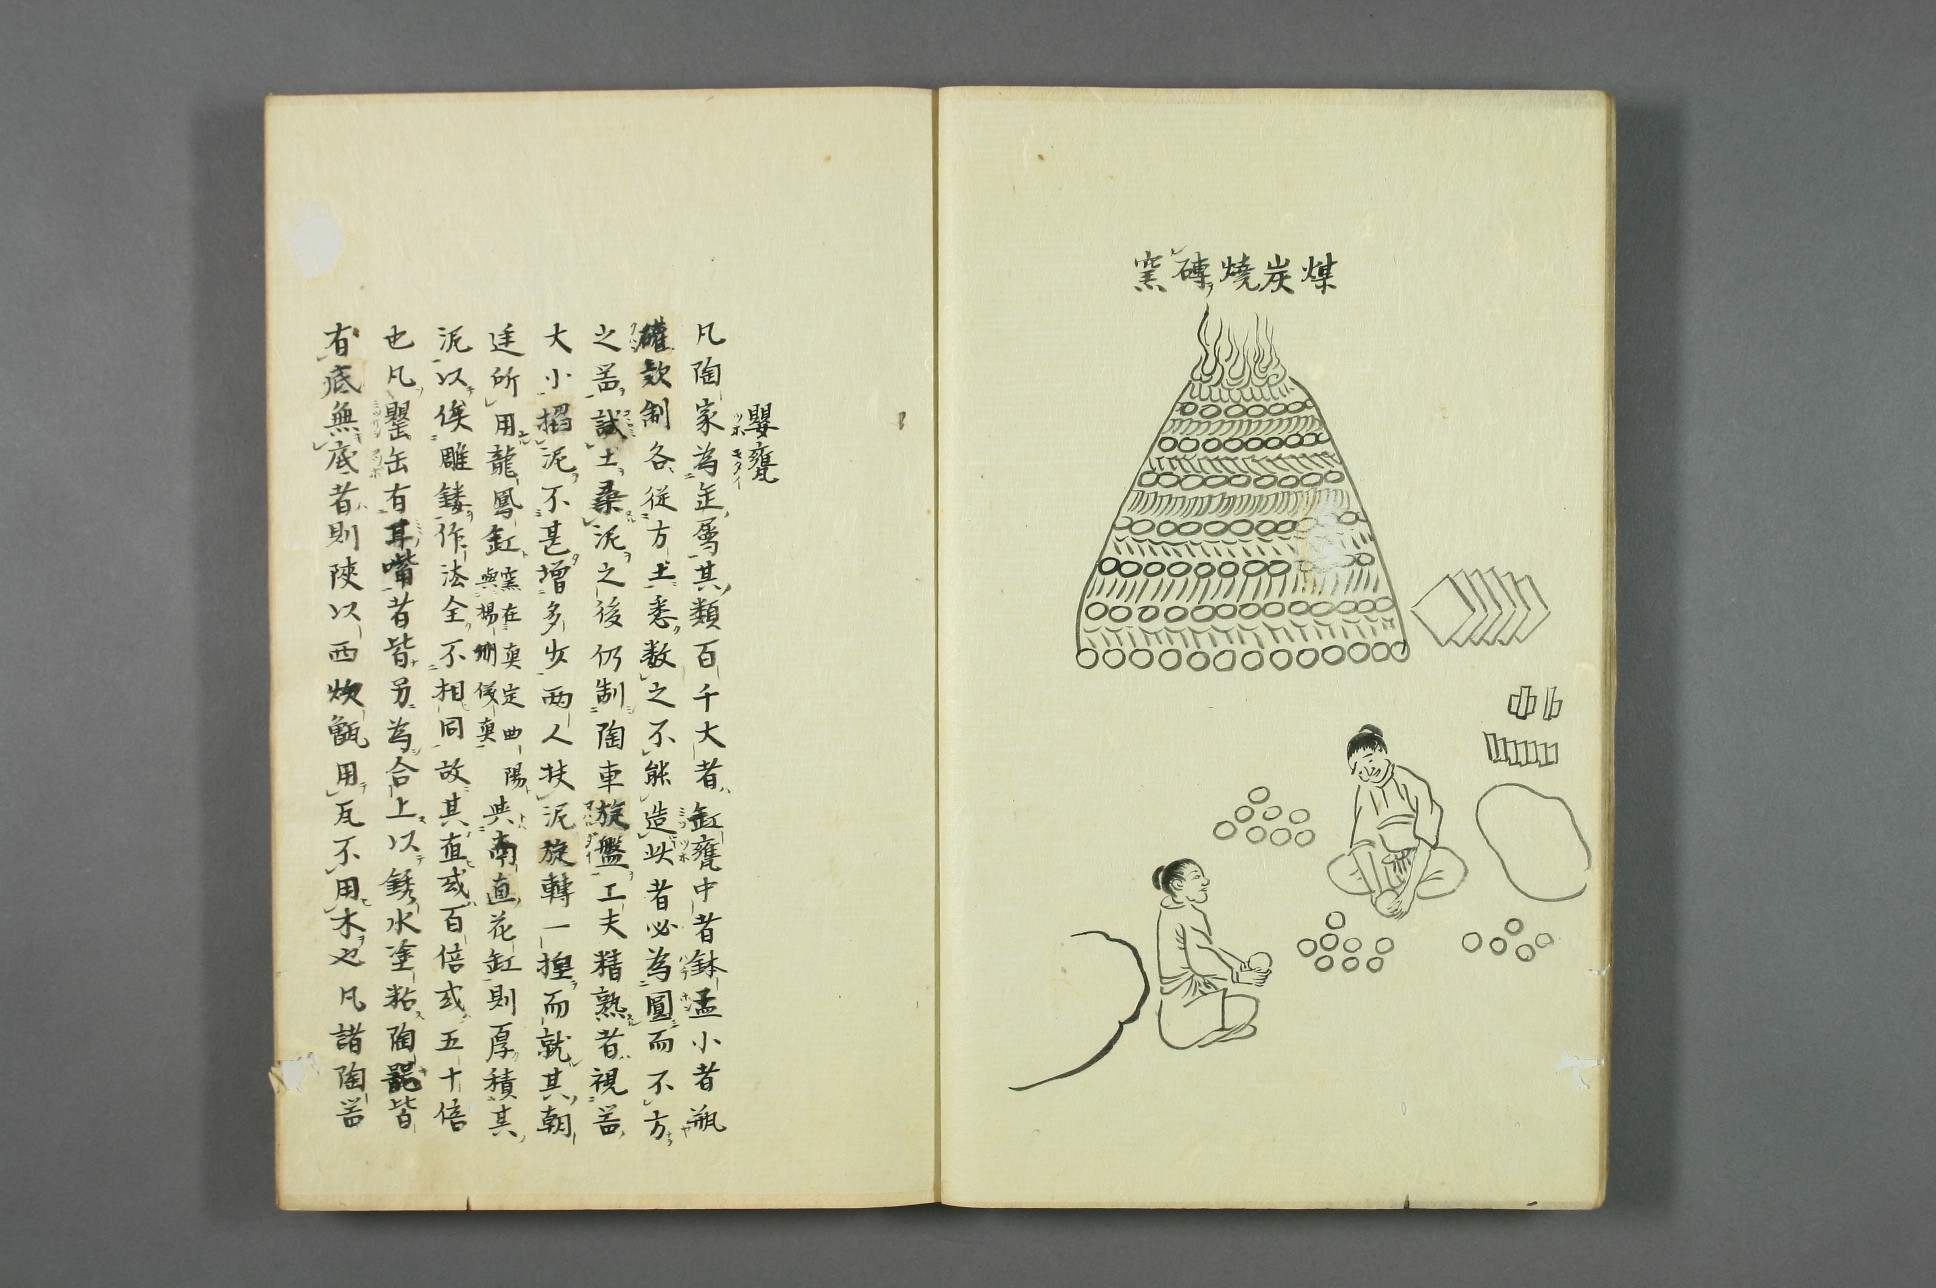 煤炭燒磚窯
罌甕
凡陶家為缶屬其類百千大者缸甕中者鉢盂小者瓶
罐款制各從方土悉数之不能造此者必為圓而不方
之噐試土桑泥之後仍制陶車旋盤工夫精熟者視噐
大小掐泥不甚增多少兩人扶泥旋轉一捏而就其朝
廷所用龍鳳缸窯在真定曲陽與揚州儀真與南直花缸則厚積其
泥以俟雕鏤作法全不相同故其直或百倍或五十倍
也凡罌缶有耳嘴者皆另為合上以銹水塗粘陶器皆
有底無底者則陝以西炊甑用瓦不用木也凡諸陶噐